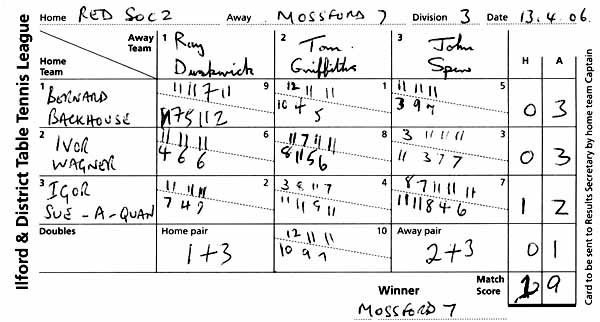 Ilford & District Table Tennis League
Home RED SOC 2 Away MOSSFORD 7 Division 3 Date 13.4.06.
Away Team
Home Team
1 Ray
2 Tom Griffiths
3 John
H A
1 BERNARD BACKHOUSE
9
11 11 7 11
1
12 11 11
10 4 5
5
11 11 11
3 9 7
0 3
2 IVOR WAGNER
6
11 11 11
4 6 6
8
11 7 11 11
8 11 5 6
3
3 11 11 11
11 3 7 7
0 3
3 IGOR SUE-A-QUAN
2
11 11 11
7 4 9
4
3 8 11 7
11 11 9 11
7
8 7 11 11 11
11 11 8 4 6
1 2
Doubles
Home pair
1+3
10
12 11 11
10 9 7
Away pair
2+3
0 1
Winner
MOSSFORD 7
Match Score
1 9
Card to be sent to Results Secretary by home team Captain